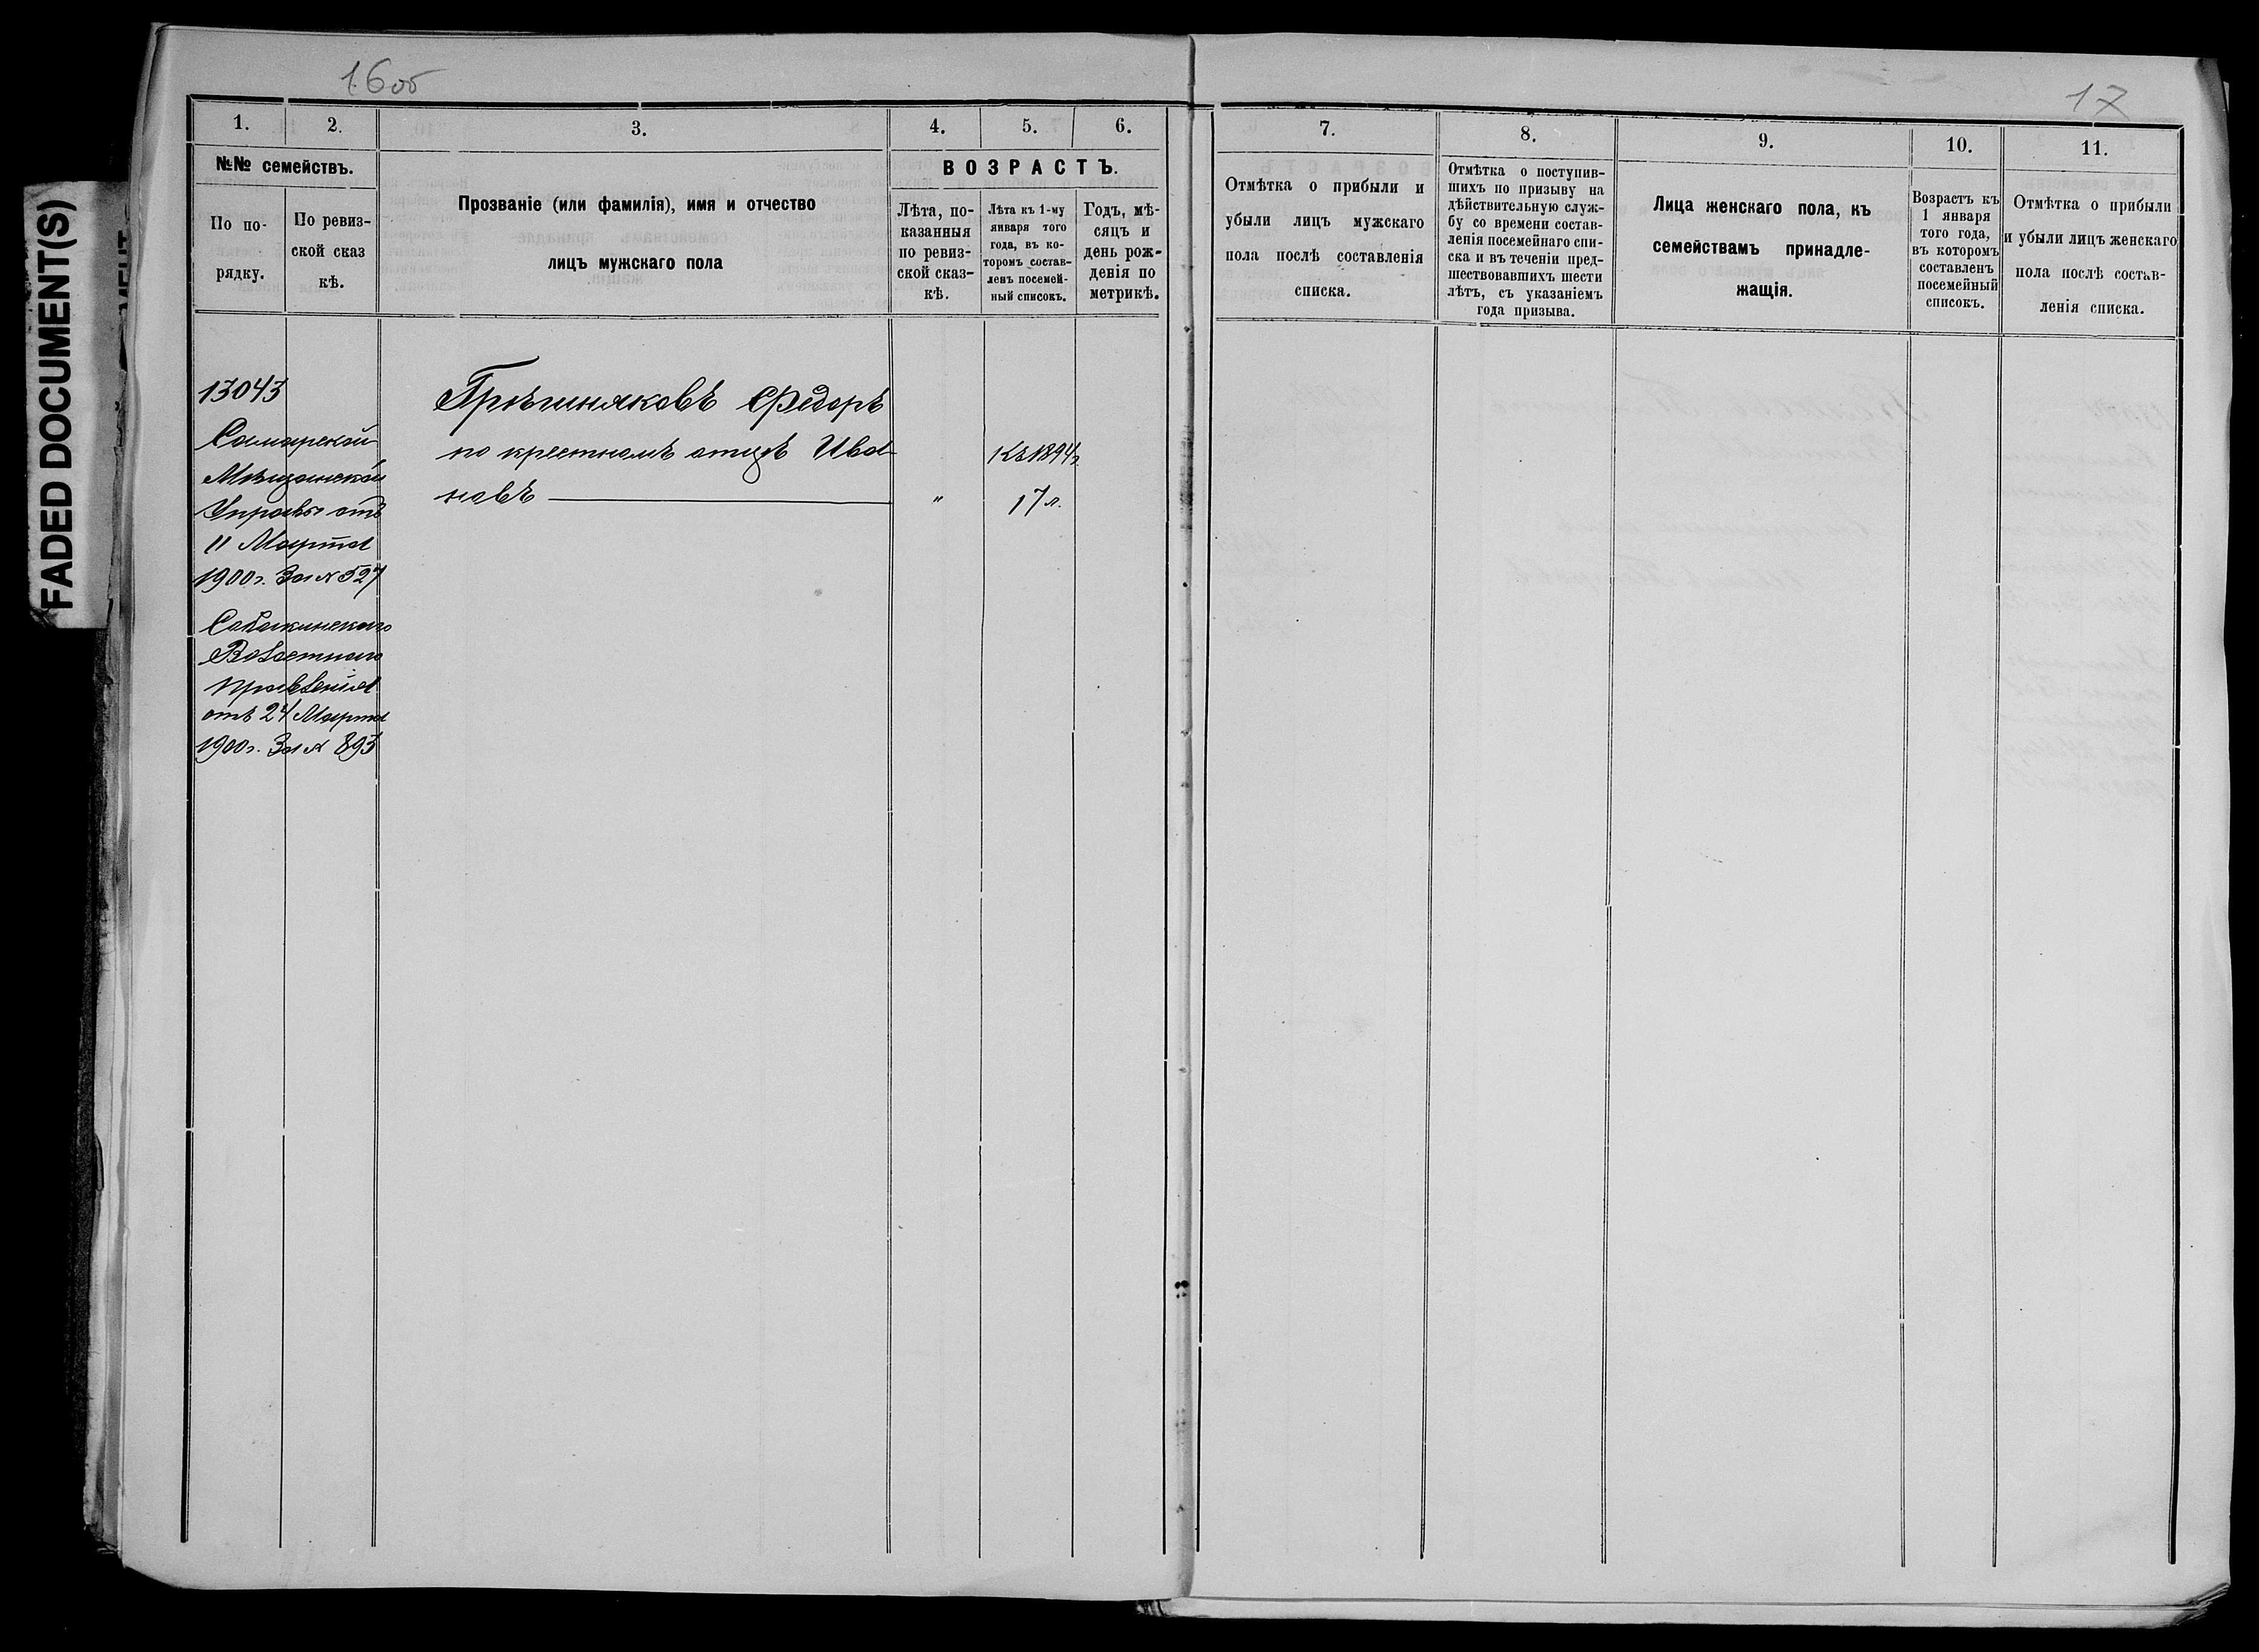 FADED DOCUMENT(S)
16об
17
1.
2.
3.
4.
5.
6.
7.
8.
9.
10.
11.
№№ семействъ.
По по-
рядку.
По ревиз-
ской сказ
кѣ.
Прозваніе (или фамилія), имя и отчество
лицъ мужскаго пола
ВОЗРАСТЪ.
Лѣта, по-
казанныя
по ревиз-
ской сказ-
кѣ.
Лѣта къ 1-му
января того
года, въ ко-
торомъ состав-
ленъ посемей-
ный списокъ.
Годъ, мѣ-
сяцъ и
день рож-
денія по
метрикѣ.
Отмѣтка о прибыли и
убыли лицъ мужскаго
пола послѣ составленія
списка.
Отмѣтка о поступив-
шихъ по призыву на
дѣйствительную служ-
бу со времени состав-
ленія посемейнаго спи-
ска и въ теченіи пред-
шествовавшихъ шести
лѣтъ, съ указаніемъ
года призыва.
Лица женскаго пола, къ
семействамъ принадле-
жащія.
Возрастъ къ
1 января
того года,
въ которомъ
составленъ
посемейный
списокъ.
Отмѣтка о прибыли
и убыли лицъ женскаго
пола послѣ состав-
ленія списка.
13043
Самарской
Мѣщанской
Управы отъ
11 Марта
1900г. За № 527
Сабакинскаго
Волостного
правленія
отъ 24 Марта
1900г. За № 893
Грѣчиняковъ Федоръ
по крестномъ отцѣ Ива-
новъ
"
Къ 1894г.
17 л.